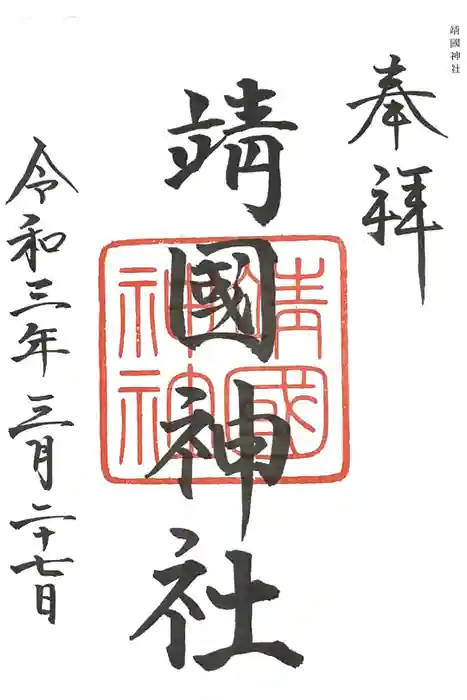 靖國神社
奉拝
靖國神社
令和三年三月二十七日